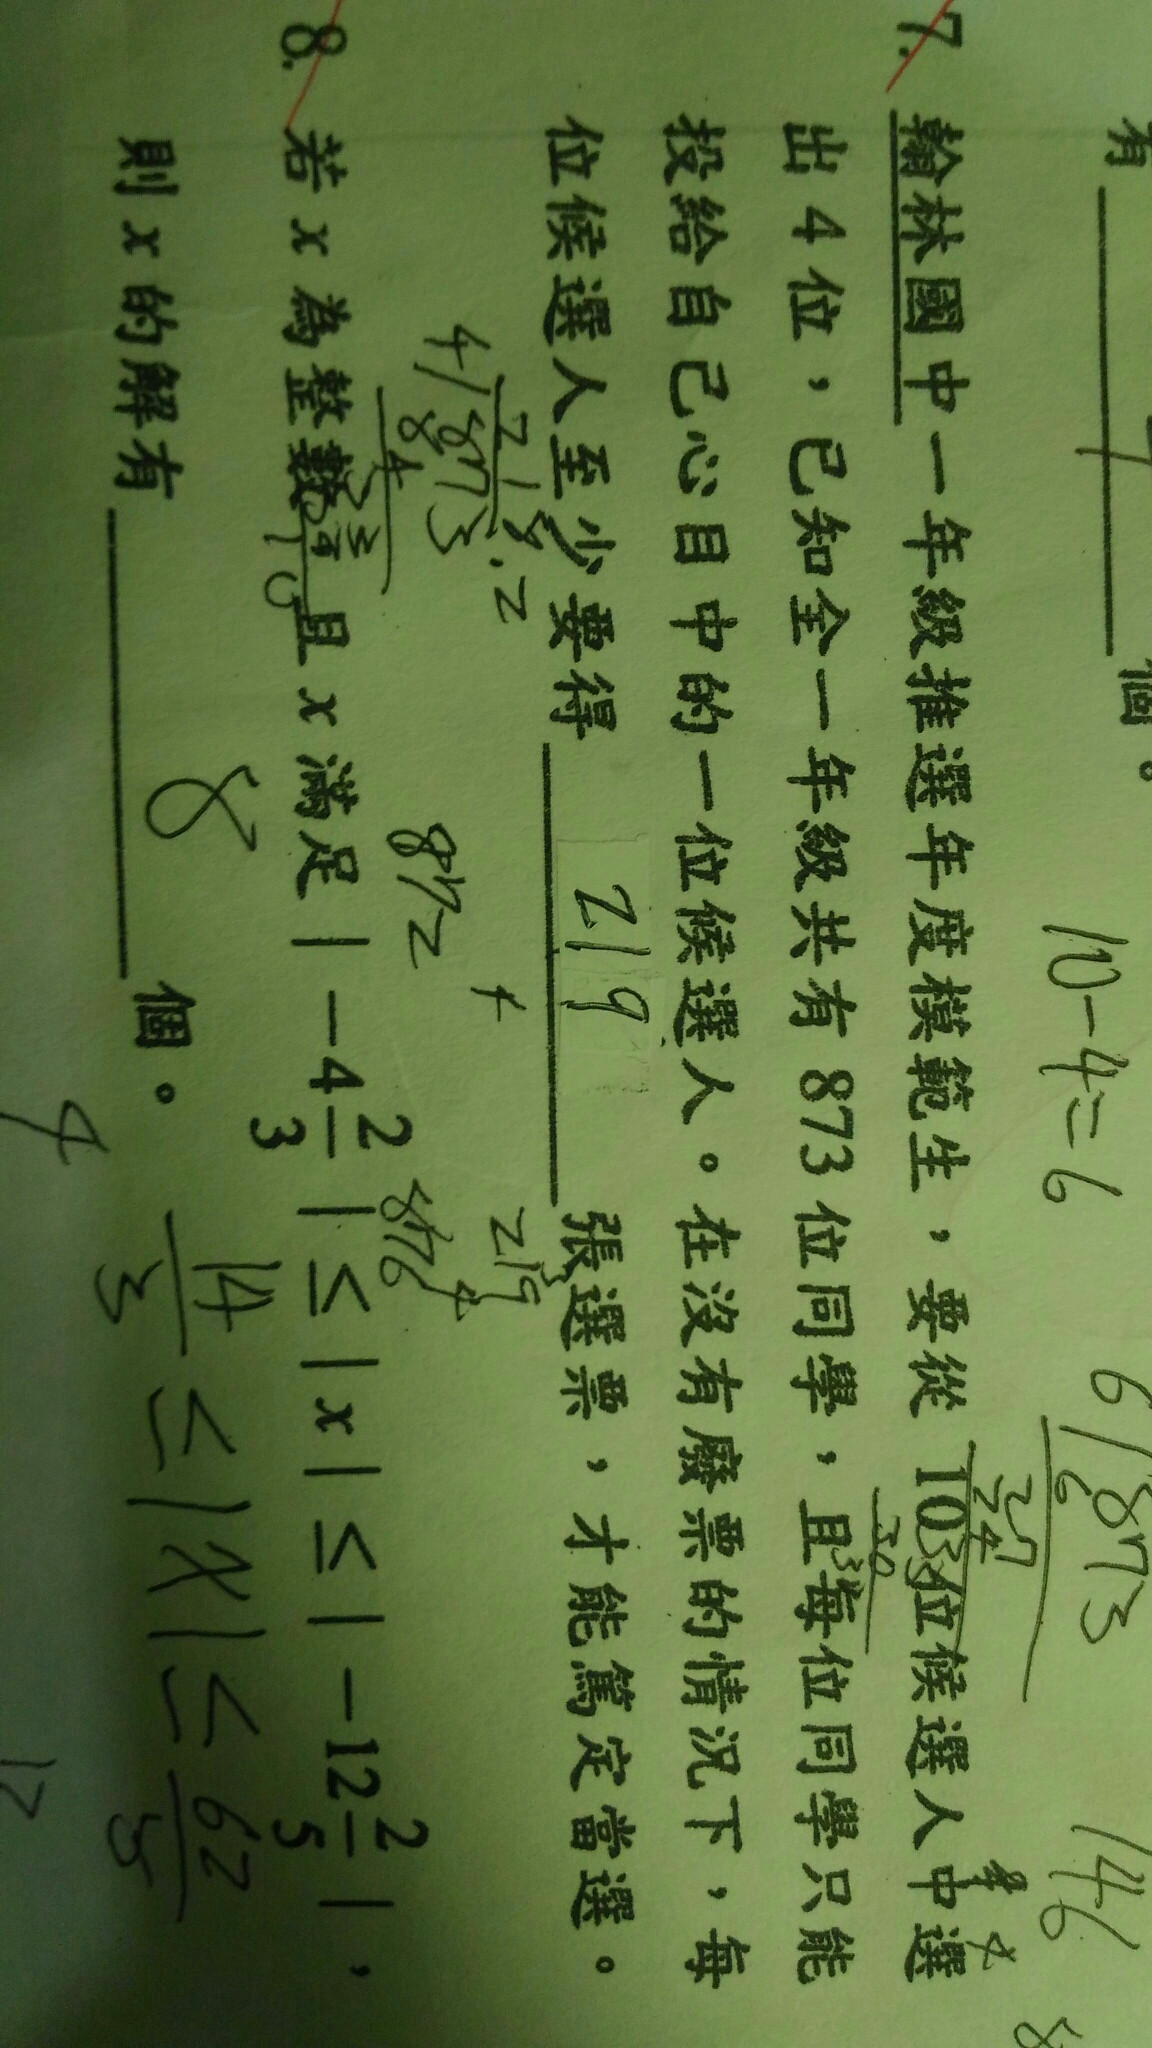 有 4 個。
10-4=6
6/873
146
7. 翰林國中一年級推選年度模範生，要從 10 位候選人中選
出 4 位，已知全一年級共有 873 位同學，且每位同學只能
投給自己心目中的一位候選人。在沒有廢票的情況下，每
位候選人至少要得 219 張選票，才能篤定當選。
218.2
4/873
872
219
4
876
8. 若 x 為整數，且 x 滿足 | -4 2/3 | ≤ | x | ≤ | -12 2/5 |，
則 x 的解有 8 個。
14/3 ≤ |x| ≤ 62/5
4
12